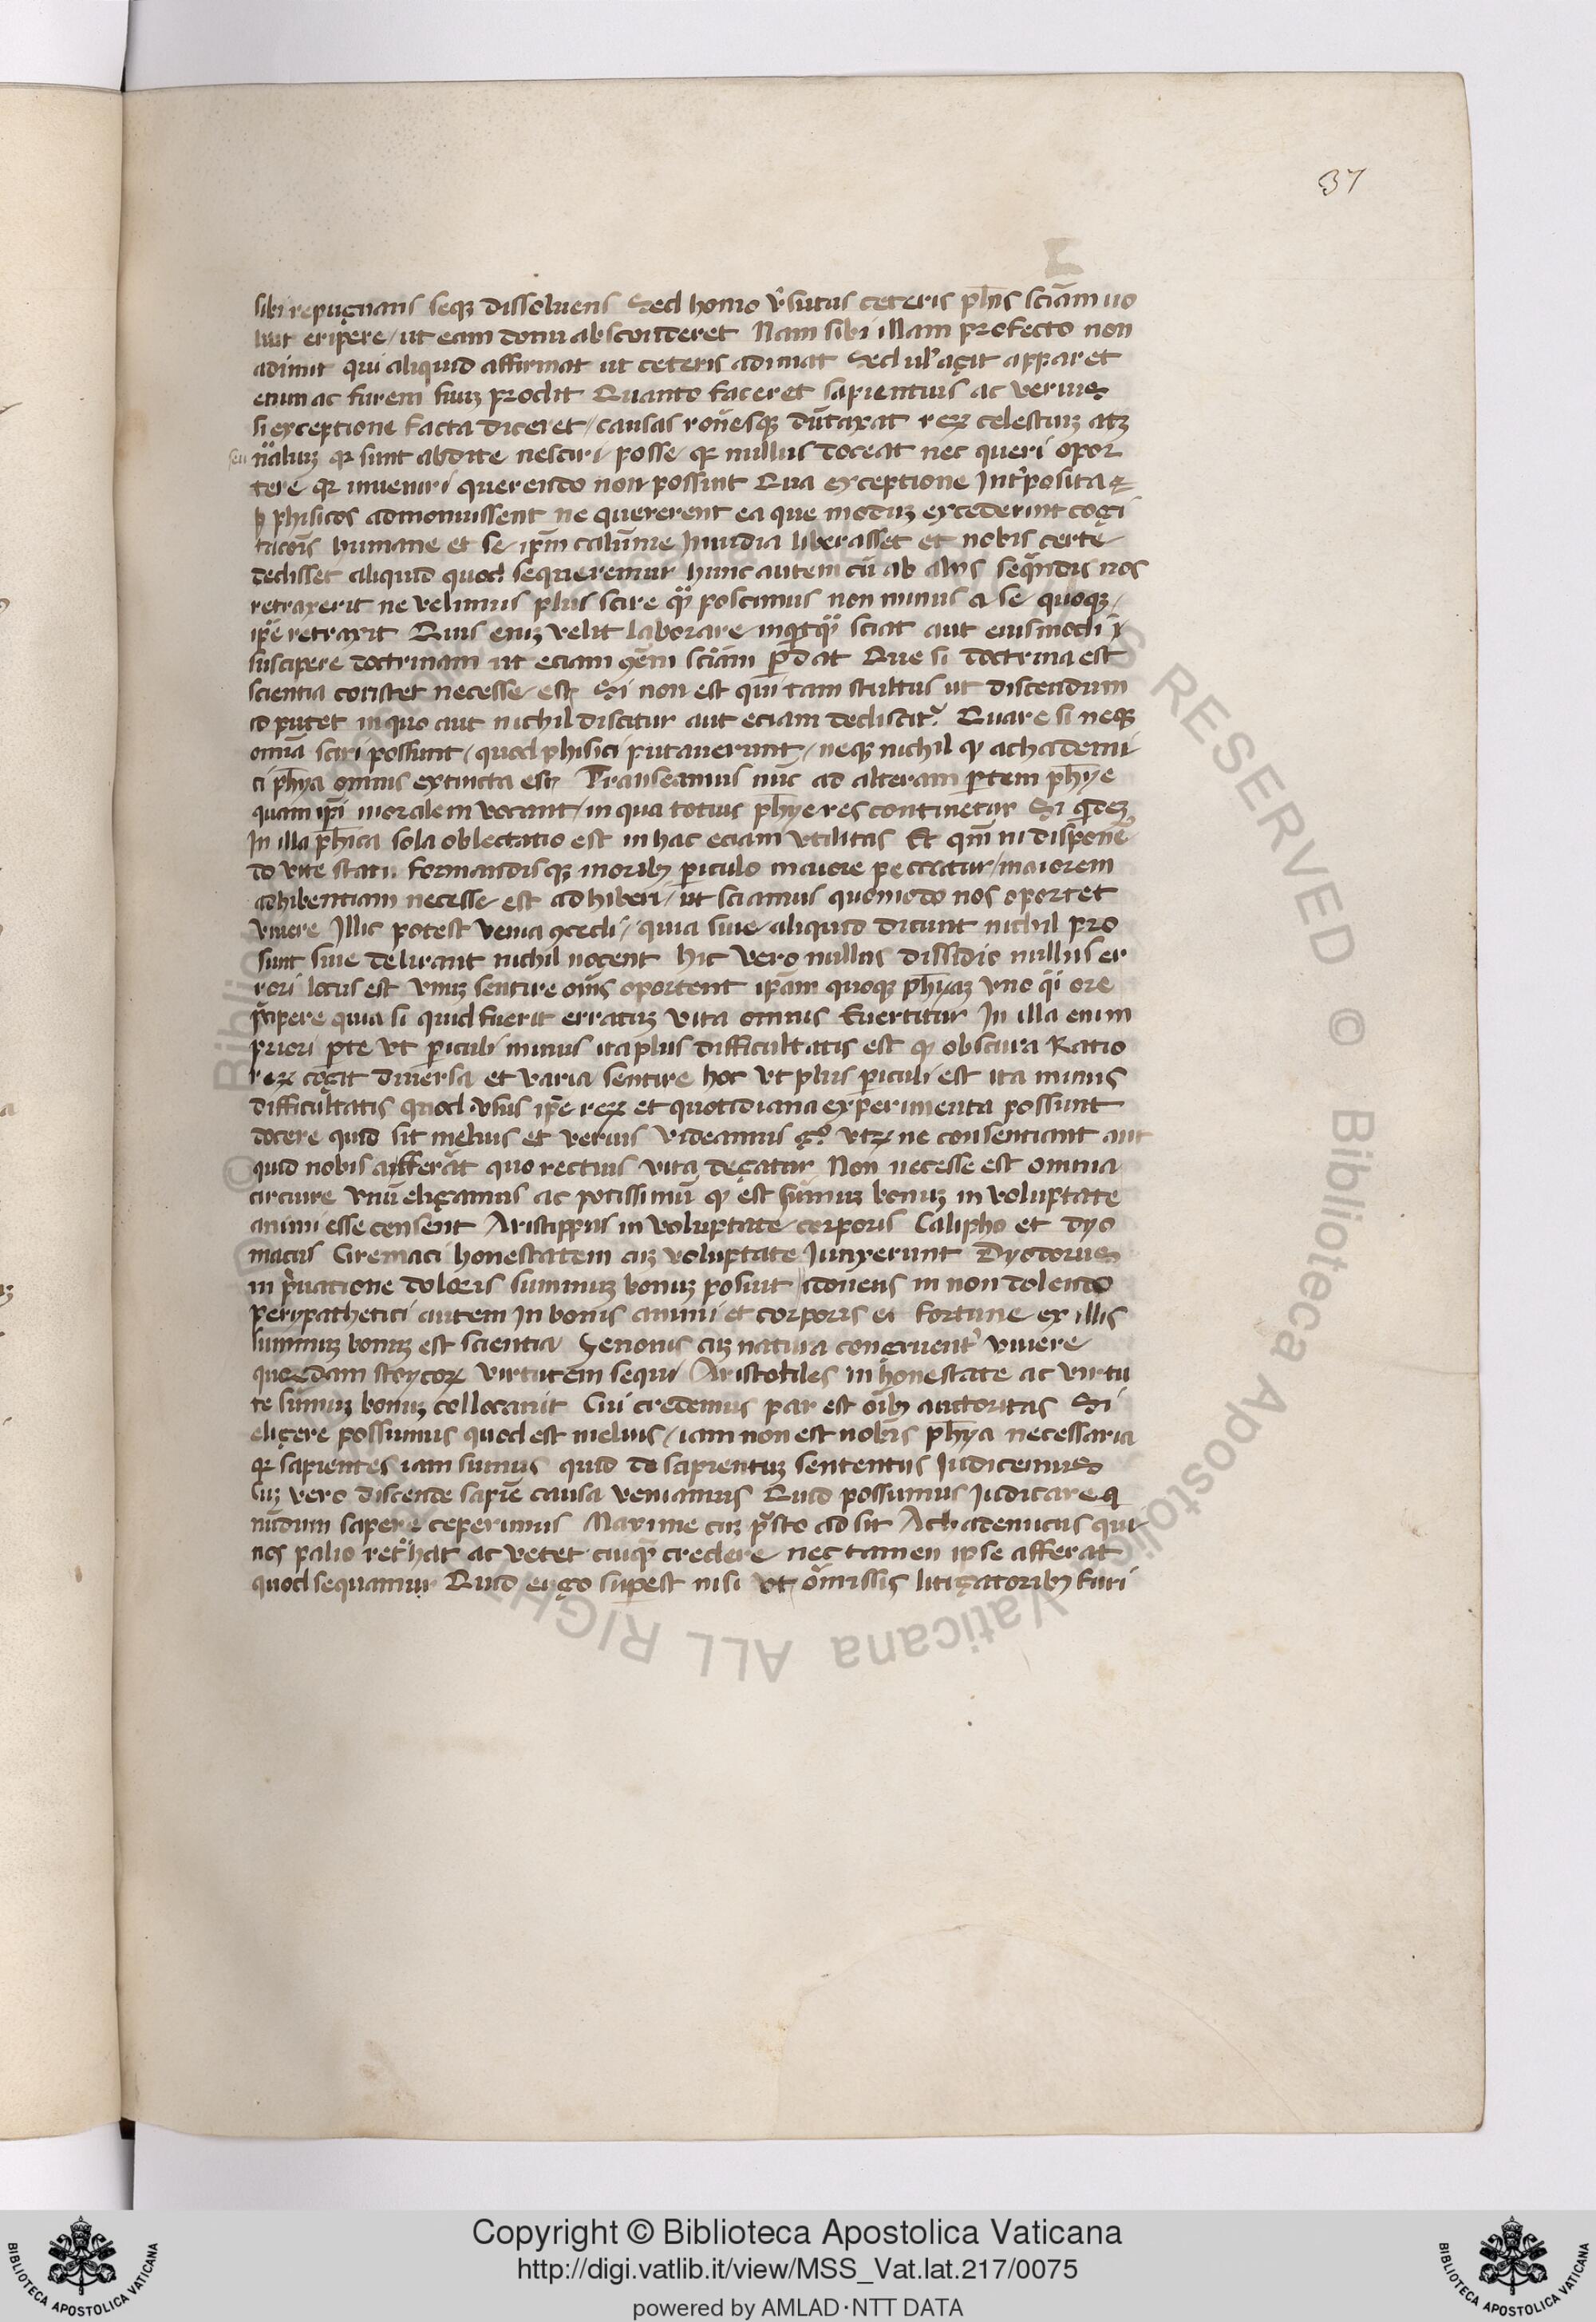 37
sibi repugnans seqꝫ dissoluens Sed homo v̓sutus ceteris ph̅is sciām uo
luit eripere / ut eam domi absconderet Nam sibi illam profecto non
adimit qui aliquid affirmat ut ceteris adimat Sed ul̓ agit apparet
enim ac furem suuꝫ prodit Quanto faceret sapientius ac verius
si exceptione facta diceret / causas rōnesqꝫ dūtaxat reꝝ celestiuꝫ atꝫ
seu nāliuꝫ qꝛ sunt abdite nesciri / posse / qꝛ nullus doceat nec queri opor
tere qꝛ inueniri querendo non possint Qua exceptione Int̓posita
phisicos admonuissent ne quererent ea que moduꝫ excederint cogi
tacōis humane et se / ip̅m calūnie Inuidia liberasset et nobis certe
dedisset aliquid quod sequeremur hunc autem cū ab alijs sequēdis nos
retraxerit ne velimus plus scire qͣ poscimus non minus a se quoqꝫ /
ip̅e retraxit Quis eniꝫ velit laborare / sciat aut eiusmodi
suscipere doctrinam ut eciam sciām ꝑdat Que si doctrina est
scientia constet necesse / est Si non est quis tam stultus ut discendum
id putet in quo aut nichil discitur aut eciam dediscit᷑ Quare si neqꝫ
omīa sciri possunt / quod phisici putauerunt / neqꝫ nichil ꝙ achademi
ci ph̅ya omnis extincta est Transeamus nūc ad alteram ꝑtem ph̅ye
quam ip̅i moralem vocant / in qua totius ph̅ye res continetur Si qͥdeꝫ
In illa ph̅ica sola oblectatio est in hac eciam vtilitas Et qm̅ in dispone̅
do vite statu formandisqꝫ moribꝫ ꝑiculo maiore peccatur / maiorem
adhibentiam necesse est adhiberi / ut sciamus quomodo nos oportet
viuere Illic potest venia ꝯcedi / quia siue aliquid dicunt nichil pro
sunt siue delirant nichil nocent hic vero nullus dissidio nullus er
rori locus est vnuꝫ sentire oīns oportent ip̅am quoqꝫ ph̅yaꝫ vno qͣi ore
p̄cipere quia si quid fuerit erratuꝫ vita omnis Euertitur In illa enim
priori ꝑte vt ꝑiculi minus ita plus difficultatis est ꝙ obscura Ratio
reꝝ cogit diuersa et varia sentire hoc vt plus ꝑiculi est ita minus
difficultatis quod vsus ip̅e reꝝ et quotidiana experimenta possunt
docere quid sit melius et verius Videamus gͦ vtꝝ ne consentiant aut
quid nobis afferāt quo rectius vita degatur Non necesse est omnia
circuire vnū eligamus ac potissimū ꝙ est sūmuꝫ bonuꝫ in voluptate
animi esse censent Aristippus in voluptate corporis Calipho et dyo
macus Gremaci honestatem cuꝫ voluptate Iunxerunt Dyodorus
in p̓uatione doloris summuꝫ bonuꝫ posuit Idoneus in non dolendo
perypathetici autem In bonis animi et corporis et fortune ex illis
summuꝫ bonuꝫ est scientia Zenonis cuꝫ natura congruent᷑ viuere
quordam stoycoꝝ virtutem sequi Aristotiles in honestate ac virtu
te sūmuꝫ bonuꝫ collocauit Cui credemus par est oībꝫ auctoritas Si
eligere possumus quod est melius / iam non est nobis ph̅ya necessaria
qꝛ sapientes iam sumus quid de sapientuꝫ sententijs Iudicemus
Cuꝫ vero discende sapīe causa veniamus Quid possumus Iudicare q
nūdum sapere ceperimus Maxime cuꝫ p̄sto ad sit Achademicus qui
nos palio ret᷑hat ac vetet cuiqͣ credere nec tamen ipse afferat
quod sequamur Quid ergo suꝑest nisi vt omissis litigatoribꝫ furi
Copyright © Biblioteca Apostolica Vaticana
http://digi.vatlib.it/view/MSS_Vat.lat.217/0075
powered by AMLAD·NTT DATA